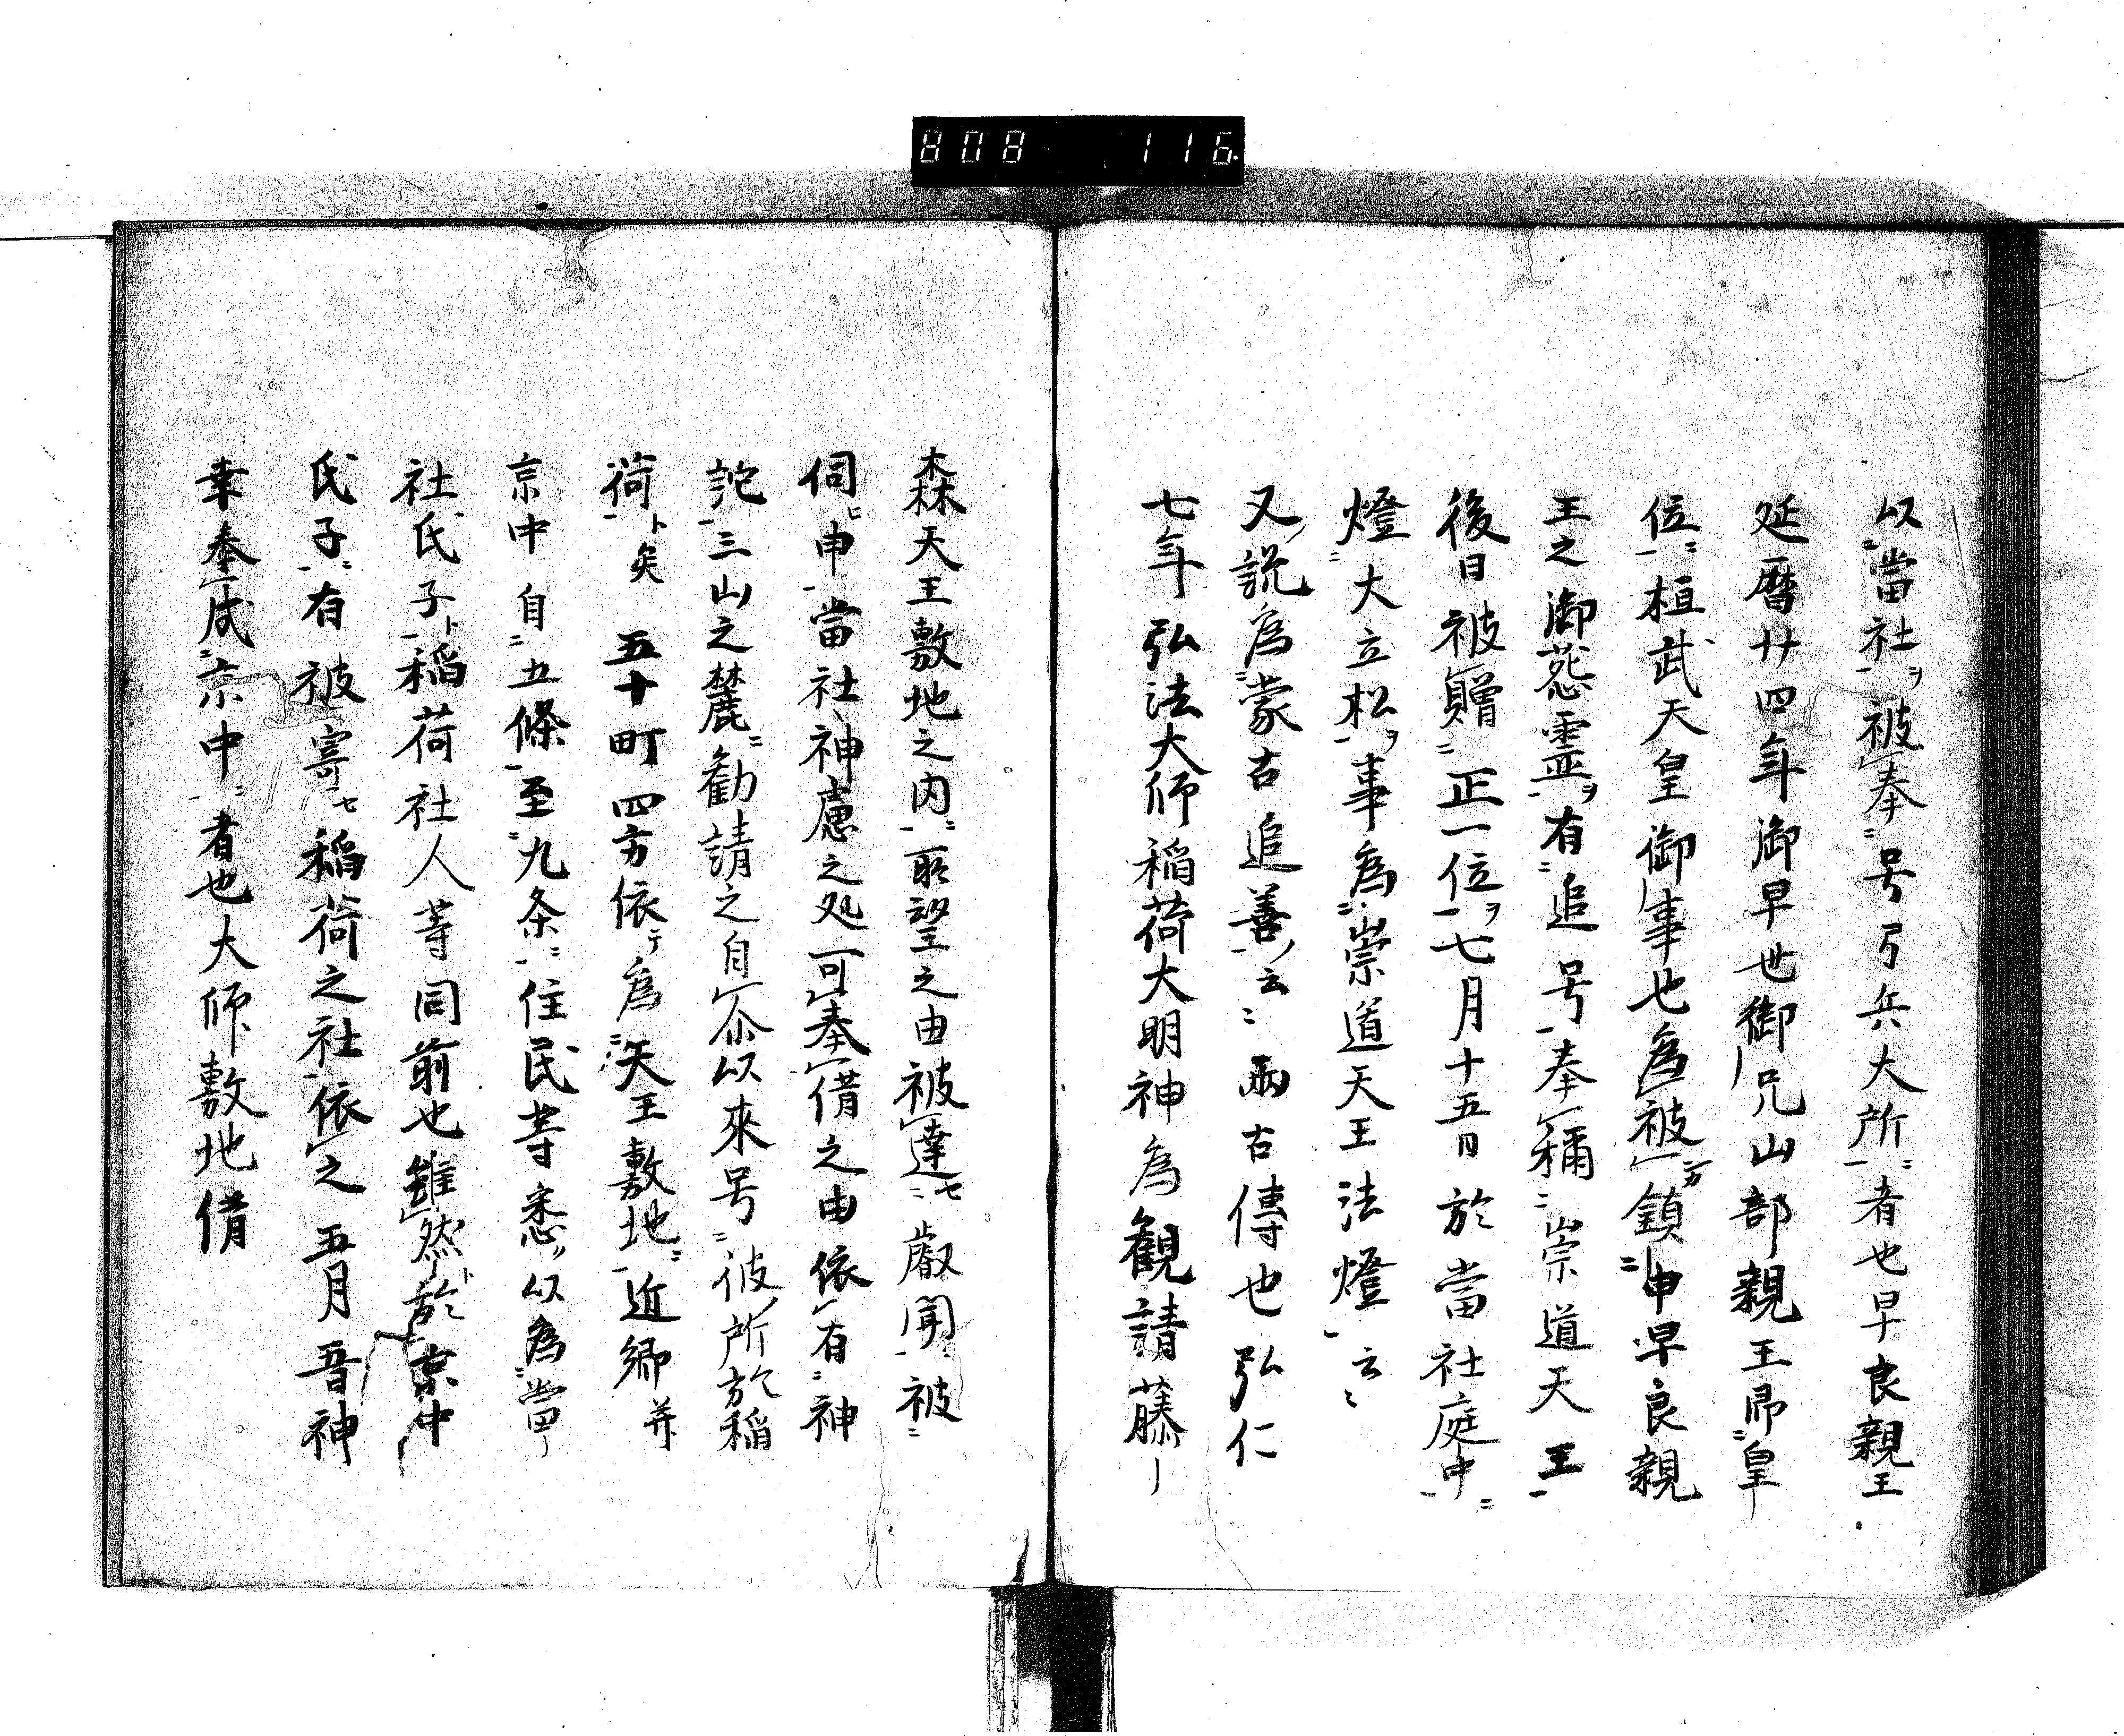 808 116
以當社ヲ被奉号弓兵大所ニ者也早良親王
延暦廿四年御早世御兄山部親王即皇
位ニ桓武天皇御事也為被鎮申早良親
王之御怨霊ヲ有追号奉稱崇道天王
後日被贈正一位ヲ七月十五日於當社庭中ニ
燈大立松ヲ事為崇道天王法燈云々
又説為蒙古追善ノ云々両古傳也弘仁
七年弘法大師稲荷大明神為観請藤ー
森天王敷地之内ニ所望之由被達叡聞被
伺申當社神慮之処可奉借之由依有神
詫三山之麓ニ勧請之自尒以來号彼所於稲
荷ト矣五十町四方依テ為天王敷地ニ近郷并
京中自五條至九条ニ住民等悉ク以為當
社氏子ト稲荷社人等同前也雖然ト於京中
氏子ニ有被寄セ稲荷之社依之五月吾神
幸奉成京中ニ者也大師敷地借